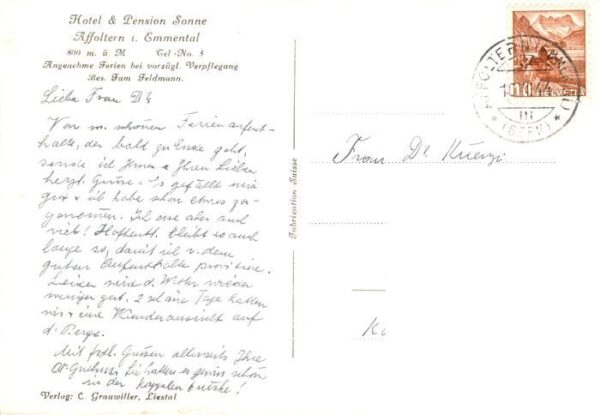 Hotel & Pension Sonne
Affoltern i. Emmental
800 m. ü. M Tel-No. 5
Angenehme Ferien bei vorzügl. Verpflegung
Bes. Fam Feldmann.
Liebe Frau Dr
Von m. schönen Ferienaufent-
halte, der bald zu Ende geht,
sende ich Ihnen & Ihren Lieben
herzl. Grüsse. Es gefällt mir
gut & ich habe schon etwas zu-
genommen. Ich esse aber auch
viel! Hoffentl. bleibt es auch
lange so, damit ich v. dem
guten Aufenthalte profitiere.
Leider wird d. Wetter wieder
weniger gut. 2 schöne Tage hatten
wir & eine Wunderaussicht auf
d. Berge.
Mit frdl. Grüssen allerseits Ihre
Sie hatten es gewiss schön
in der
Verlag: C. Grauwiller, Liestal
Fabrication Suisse
Frau Dr Kuenzi
K
10 HELVETIA
AFFOLTERN (EMMENTAL)
(BERN)